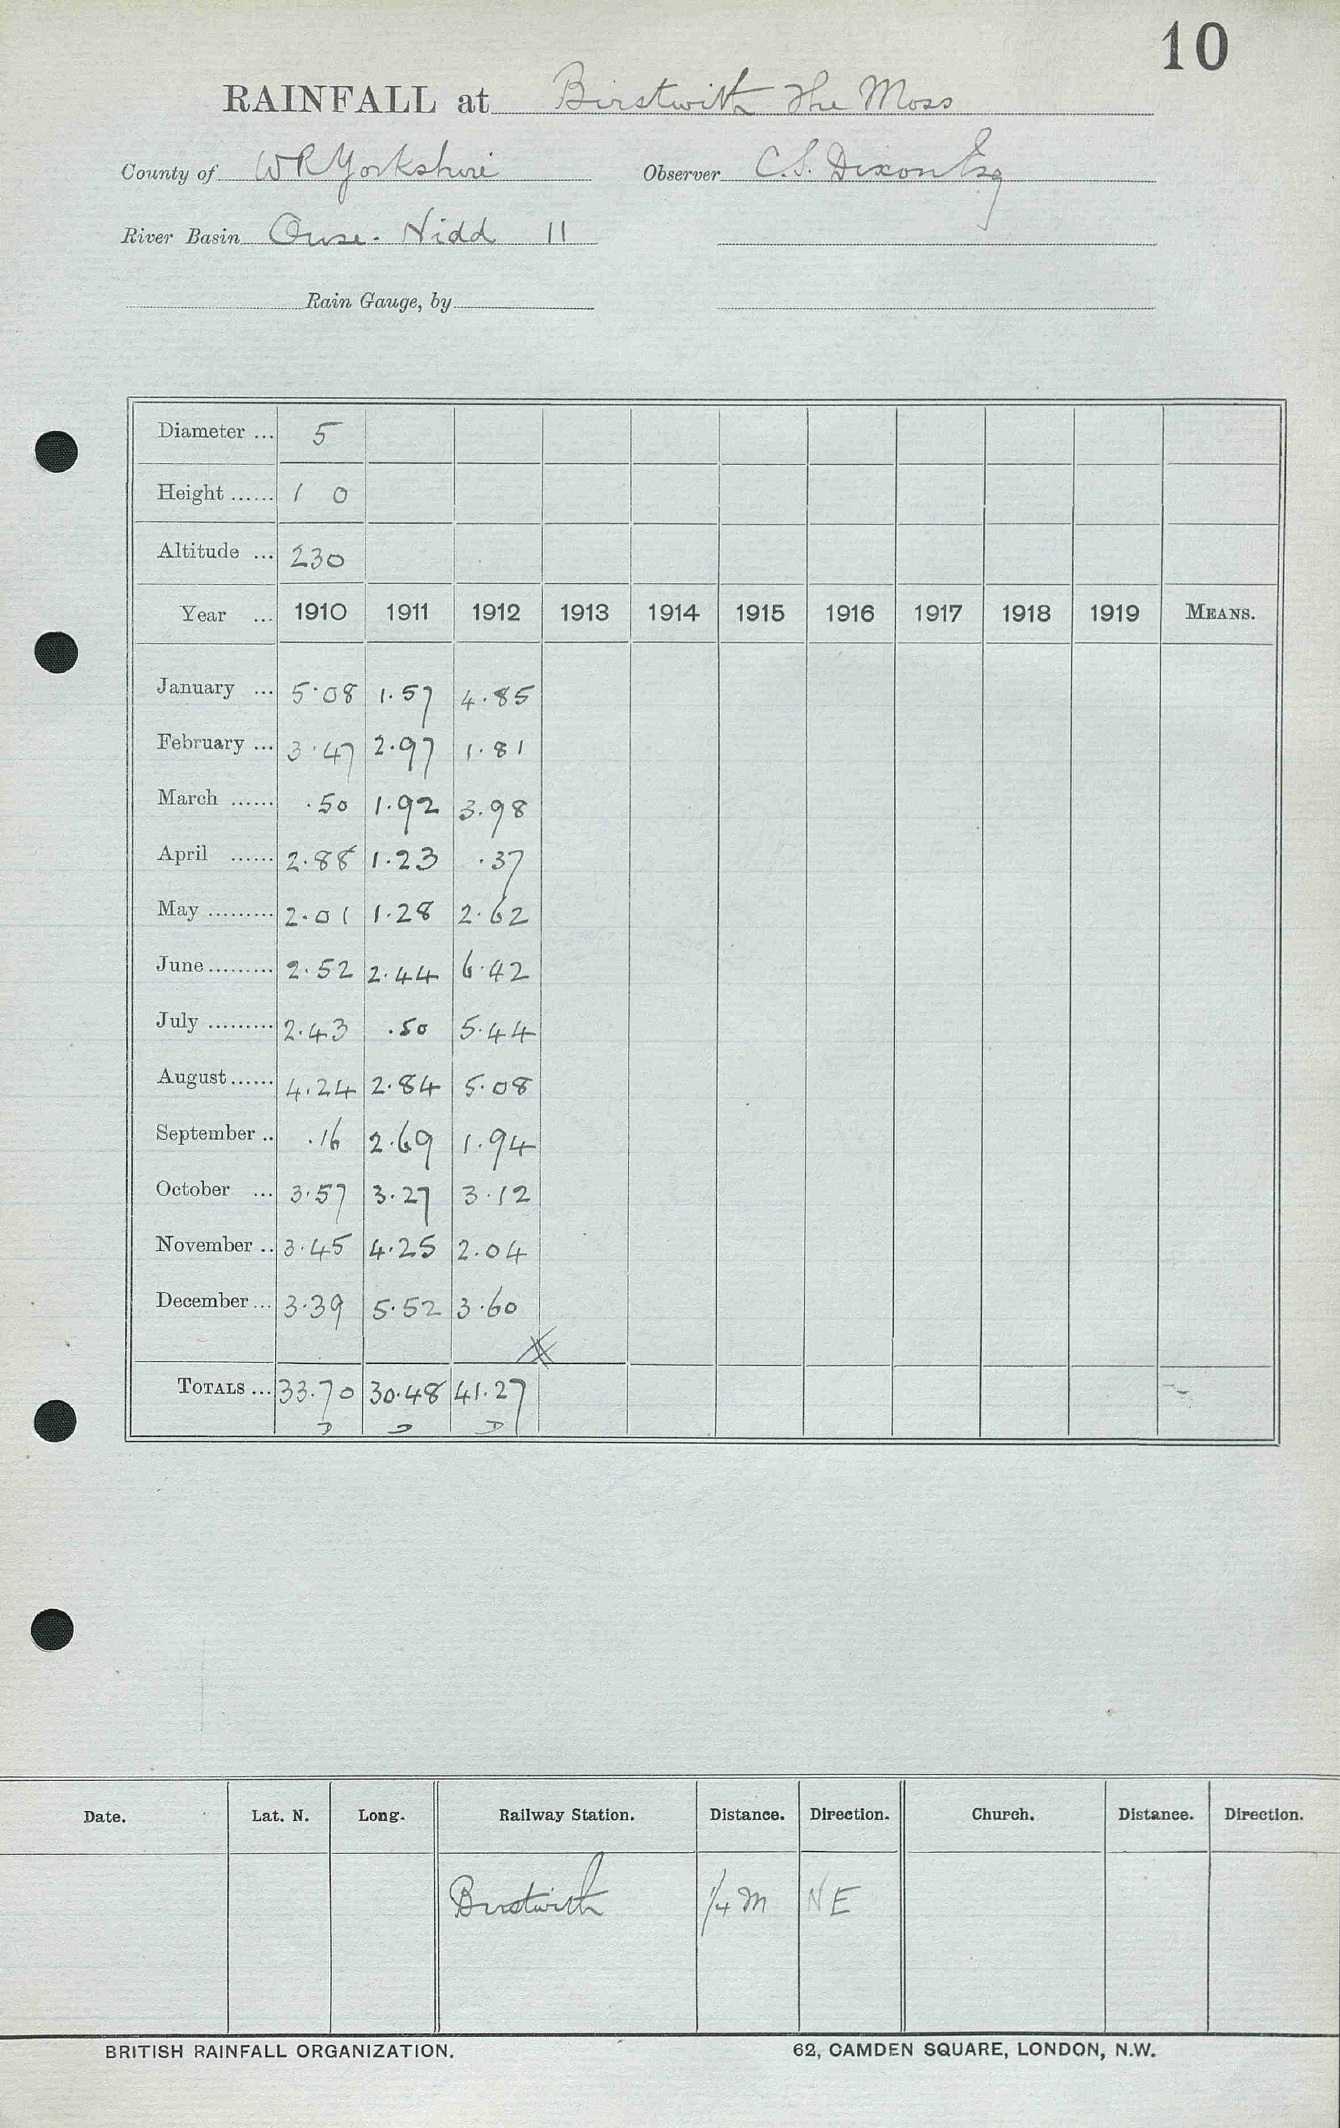 10
RAINFALL at Birstwith The Moss
County of W R Yorkshire Observer C. S. Dixon Esq
River Basin Ouse - Nidd 11
Rain Gauge, by
Diameter ... 5
Height ...... 1 0
Altitude ... 230
Year ... 1910 1911 1912 1913 1914 1915 1916 1917 1918 1919 MEANS.
January ... 5.08 1.57 4.85
February ... 3.47 2.97 1.81
March ...... .50 1.92 3.98
April ...... 2.88 1.23 .37
May ......... 2.01 1.28 2.62
June ......... 2.52 2.44 6.42
July ......... 2.43 .50 5.44
August ...... 4.24 2.84 5.08
September .. .16 2.69 1.94
October ... 3.57 3.27 3.12
November .. 3.45 4.25 2.04
December ... 3.39 5.52 3.60
TOTALS ... 33.70 30.48 41.27
Date. Lat. N. Long. Railway Station. Distance. Direction. Church. Distance. Direction.
Birstwith 1/4 m NE
BRITISH RAINFALL ORGANIZATION. 62, CAMDEN SQUARE, LONDON, N.W.